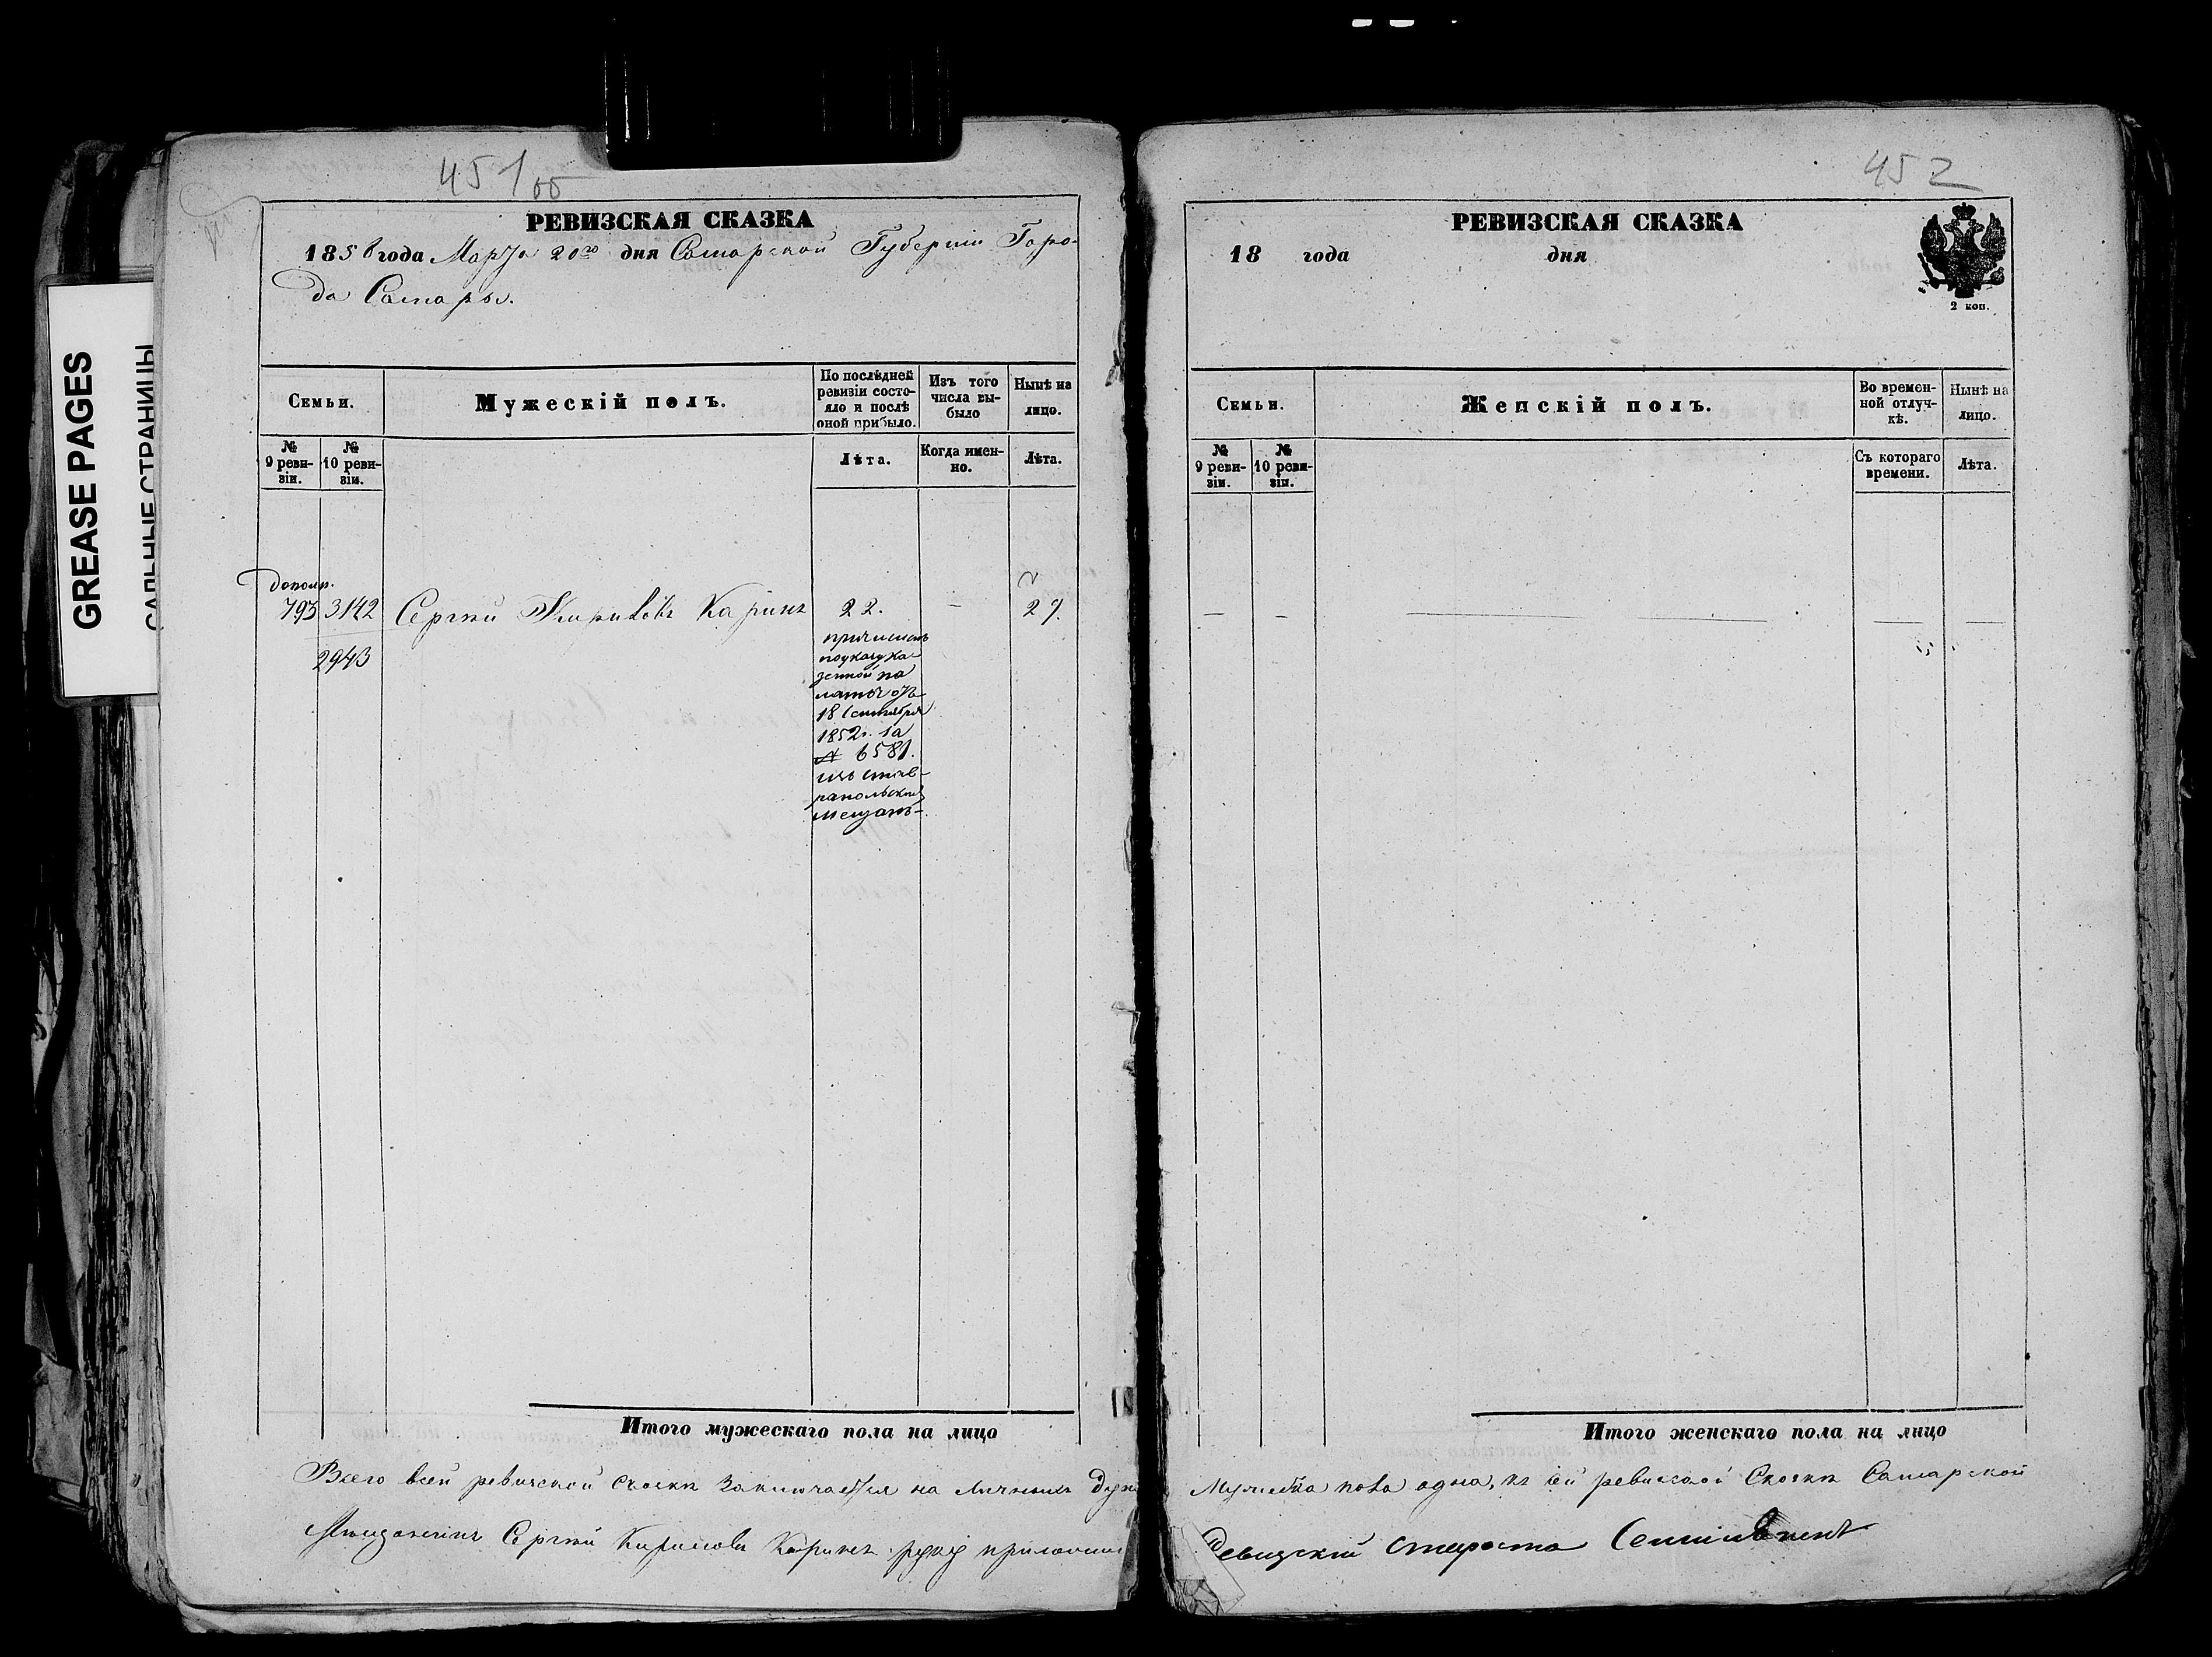 451об
РЕВИЗСКАЯ СКАЗКА
1858 года Марта 20го дня Самарской Губерніи Горо-
да Самары.
Семьи.
Мужескій полъ.
По послѣдней
ревизіи состо-
яло и послѣ
оной прибыло.
Изъ того
числа вы-
было
Нынѣ на
лицо.
№
9 реви-
зіи.
№
10 реви-
зіи.
Лѣта.
Когда имен-
но.
Лѣта.
Дополн.
793 3142 Сергѣй Кириловъ Каринъ 22. — 27.
2943
причисленъ
по указу Ка-
зенной па
латы отъ
18 Сентября
1852г. за
№ 6581.
изъ став-
рапольскихъ
мещанъ-
Итого мужескаго пола на лицо
Всего всей ревизской сказки заключается на личныхъ душ
Мещанинъ Сергѣй Кириловъ Каринъ руку приложилъ
452
РЕВИЗСКАЯ СКАЗКА
18 года дня
2 коп.
Семьи.
Женскій полъ.
Во времен-
ной отлуч-
кѣ.
Нынѣ на
лицо.
№
9 реви-
зіи.
№
10 реви-
зіи.
Съ котораго
времени.
Лѣта.
— — — — —
Итого женскаго пола на лицо
Мужеска пола одна, къ сей ревизской Сказки Самарской
Ревизскій староста
GREASE PAGES
САЛЬНЫЕ СТРАНИЦЫ